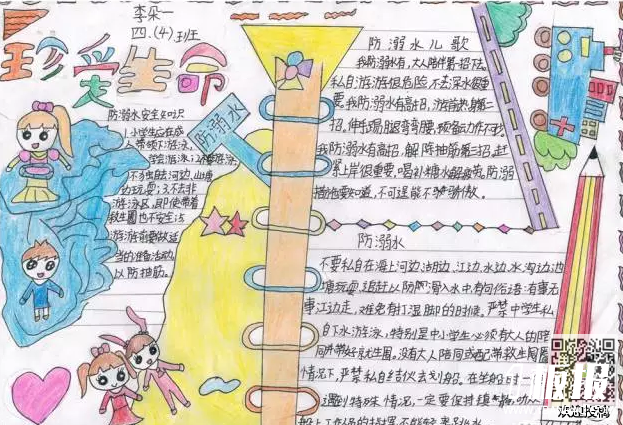 李朵一
四.(4)班
珍爱生命
防溺水安全知识
1.小学生应在成
人带领下游泳,
学会游泳;2.不要
不独自去河边,山塘
边玩耍;3.不去非
游泳区,即使带着
救生圈也不安全;5.
游泳前要做适
当的准备活动
以防抽筋。
防溺水
防溺水儿歌
我防溺水有,大人陪伴第一招
私自游泳很危险,不去深水
要,我防溺水有高招,游前热身第二
招。伸手踢腿弯弯腰,
我防溺水有高招,解除抽筋第三招,赶
紧上岸很重要,喝补糖水解疲劳,防溺
要知道,不可逞能不骄傲。
防溺水
不要私自在海上河边湖边,江边水边,水沟边池
塘玩耍,追赶以防滑入水中,有句俗语:有事无
事江边走,难免有打湿脚的时候。严禁中学生私
自下水游泳,特别是中小学生必须有大人的陪
同并带好救生圈。没有大人陪同或配带救生圈
情况下,严禁私自结伙去划船。在坐船时
遇到特殊情况,一定要保持镇